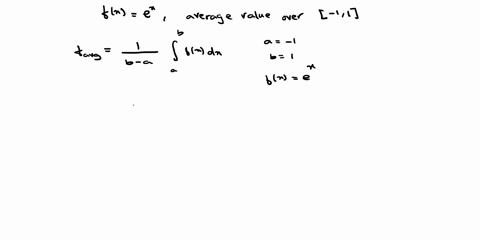 f(x) = eˣ, average value over [-1,1]
f_avg = 1/(b-a) ∫ₐᵇ f(x) dx
a = -1
b = 1
f(x) = eˣ